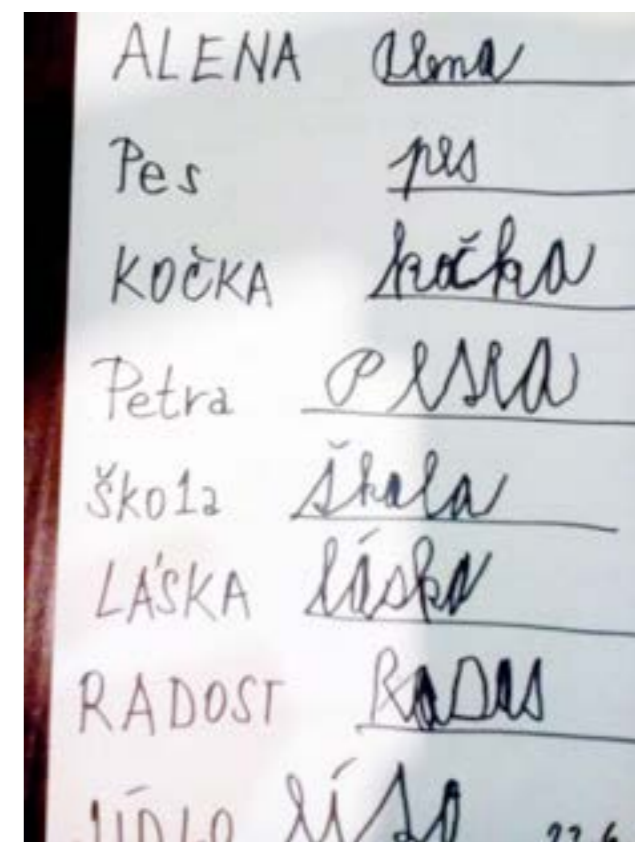 ALENA Alena
Pes pes
KOČKA kočka
Petra Pesra
Škola škola
LÁSKA láska
RADOST RaDos
JÍDLO